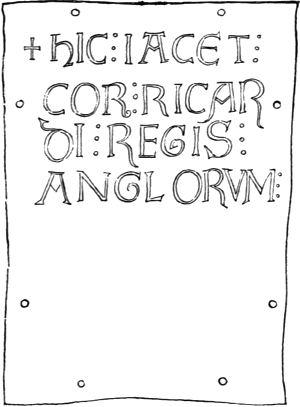 + hIC:IACET:
COR:RICAR
DI:REGIS:
ANGLORVM: